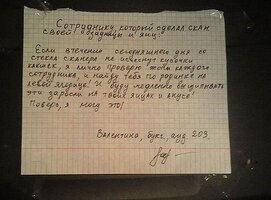 Сотруднику, который сделал скан
своей задницы и яиц!
Если втечение сегодняшнего дня со
стекла сканера не исчезнут кусочки
какашек, я лично проверю жопы каждого
сотрудника, и найду тебя по родинке на
левой ягодице! И буду медленно выщипывать
эти заросли на твоих яйцах и анусе!
Поверь, я могу это!
Валентина, бухг, ауд 203